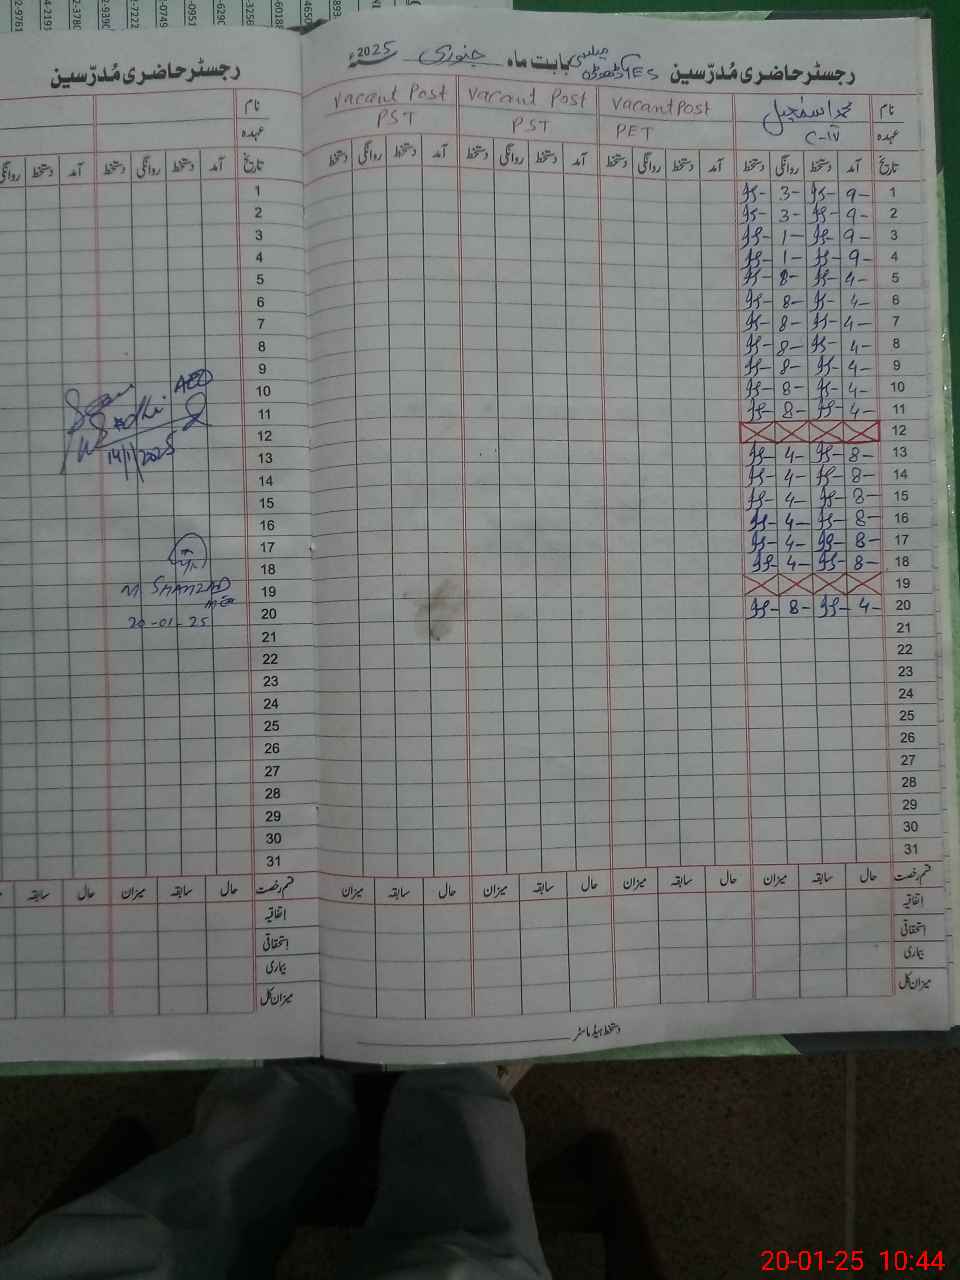 رجسٹر حاضری مُدرّسین GES بابت ماہ جنوری سنہ 2025ء
نام محمد اسمٰعیل vacant Post vacant Post vacant Post
عہدہ C-IV PET PST PST
تاریخ آمد دستخط روانگی دستخط آمد دستخط روانگی دستخط آمد دستخط روانگی دستخط آمد دستخط روانگی دستخط
1 9- 3-
2 9- 3-
3 9- 1-
4 9- 1-
5 4- 8-
6 4- 8-
7 4- 8-
8 4- 8-
9 4- 8-
10 4- 8-
11 4- 8-
12
13 8- 4-
14 8- 4-
15 8- 4-
16 8- 4-
17 8- 4-
18 8- 4-
19
20 4- 8-
21
22
23
24
25
26
27
28
29
30
31
قسم رخصت حال سابقہ میزان حال سابقہ میزان حال سابقہ میزان حال سابقہ میزان
اتفاقیہ
استحقاقی
بیماری
میزان کل
دستخط ہیڈ ماسٹر
رجسٹر حاضری مُدرّسین
نام
عہدہ
تاریخ آمد دستخط روانگی دستخط آمد دستخط روانگی
1
2
3
4
5
6
7
8
9
10 AEO
11
12
13 14/1/2025
14
15
16
17
18
19 M SHAHZAD
20 20-01-25
21
22
23
24
25
26
27
28
29
30
31
قسم رخصت حال سابقہ میزان حال سابقہ
اتفاقیہ
استحقاقی
بیماری
میزان کل
20-01-25 10:44